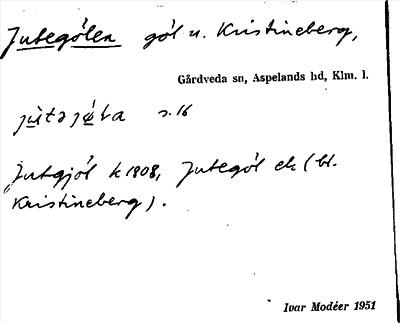 Jutegölen göl u. Kristineberg,
Gårdveda sn, Aspelands hd, Klm. l.
s. 16
Jutgjöl k 1808, Jutegöl ek (bl.
Kristineberg).
Ivar Modéer 1951